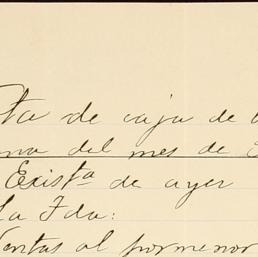 de caja de
del mes de
Exist.a de ayer
La Fda:
Ventas al pormenor